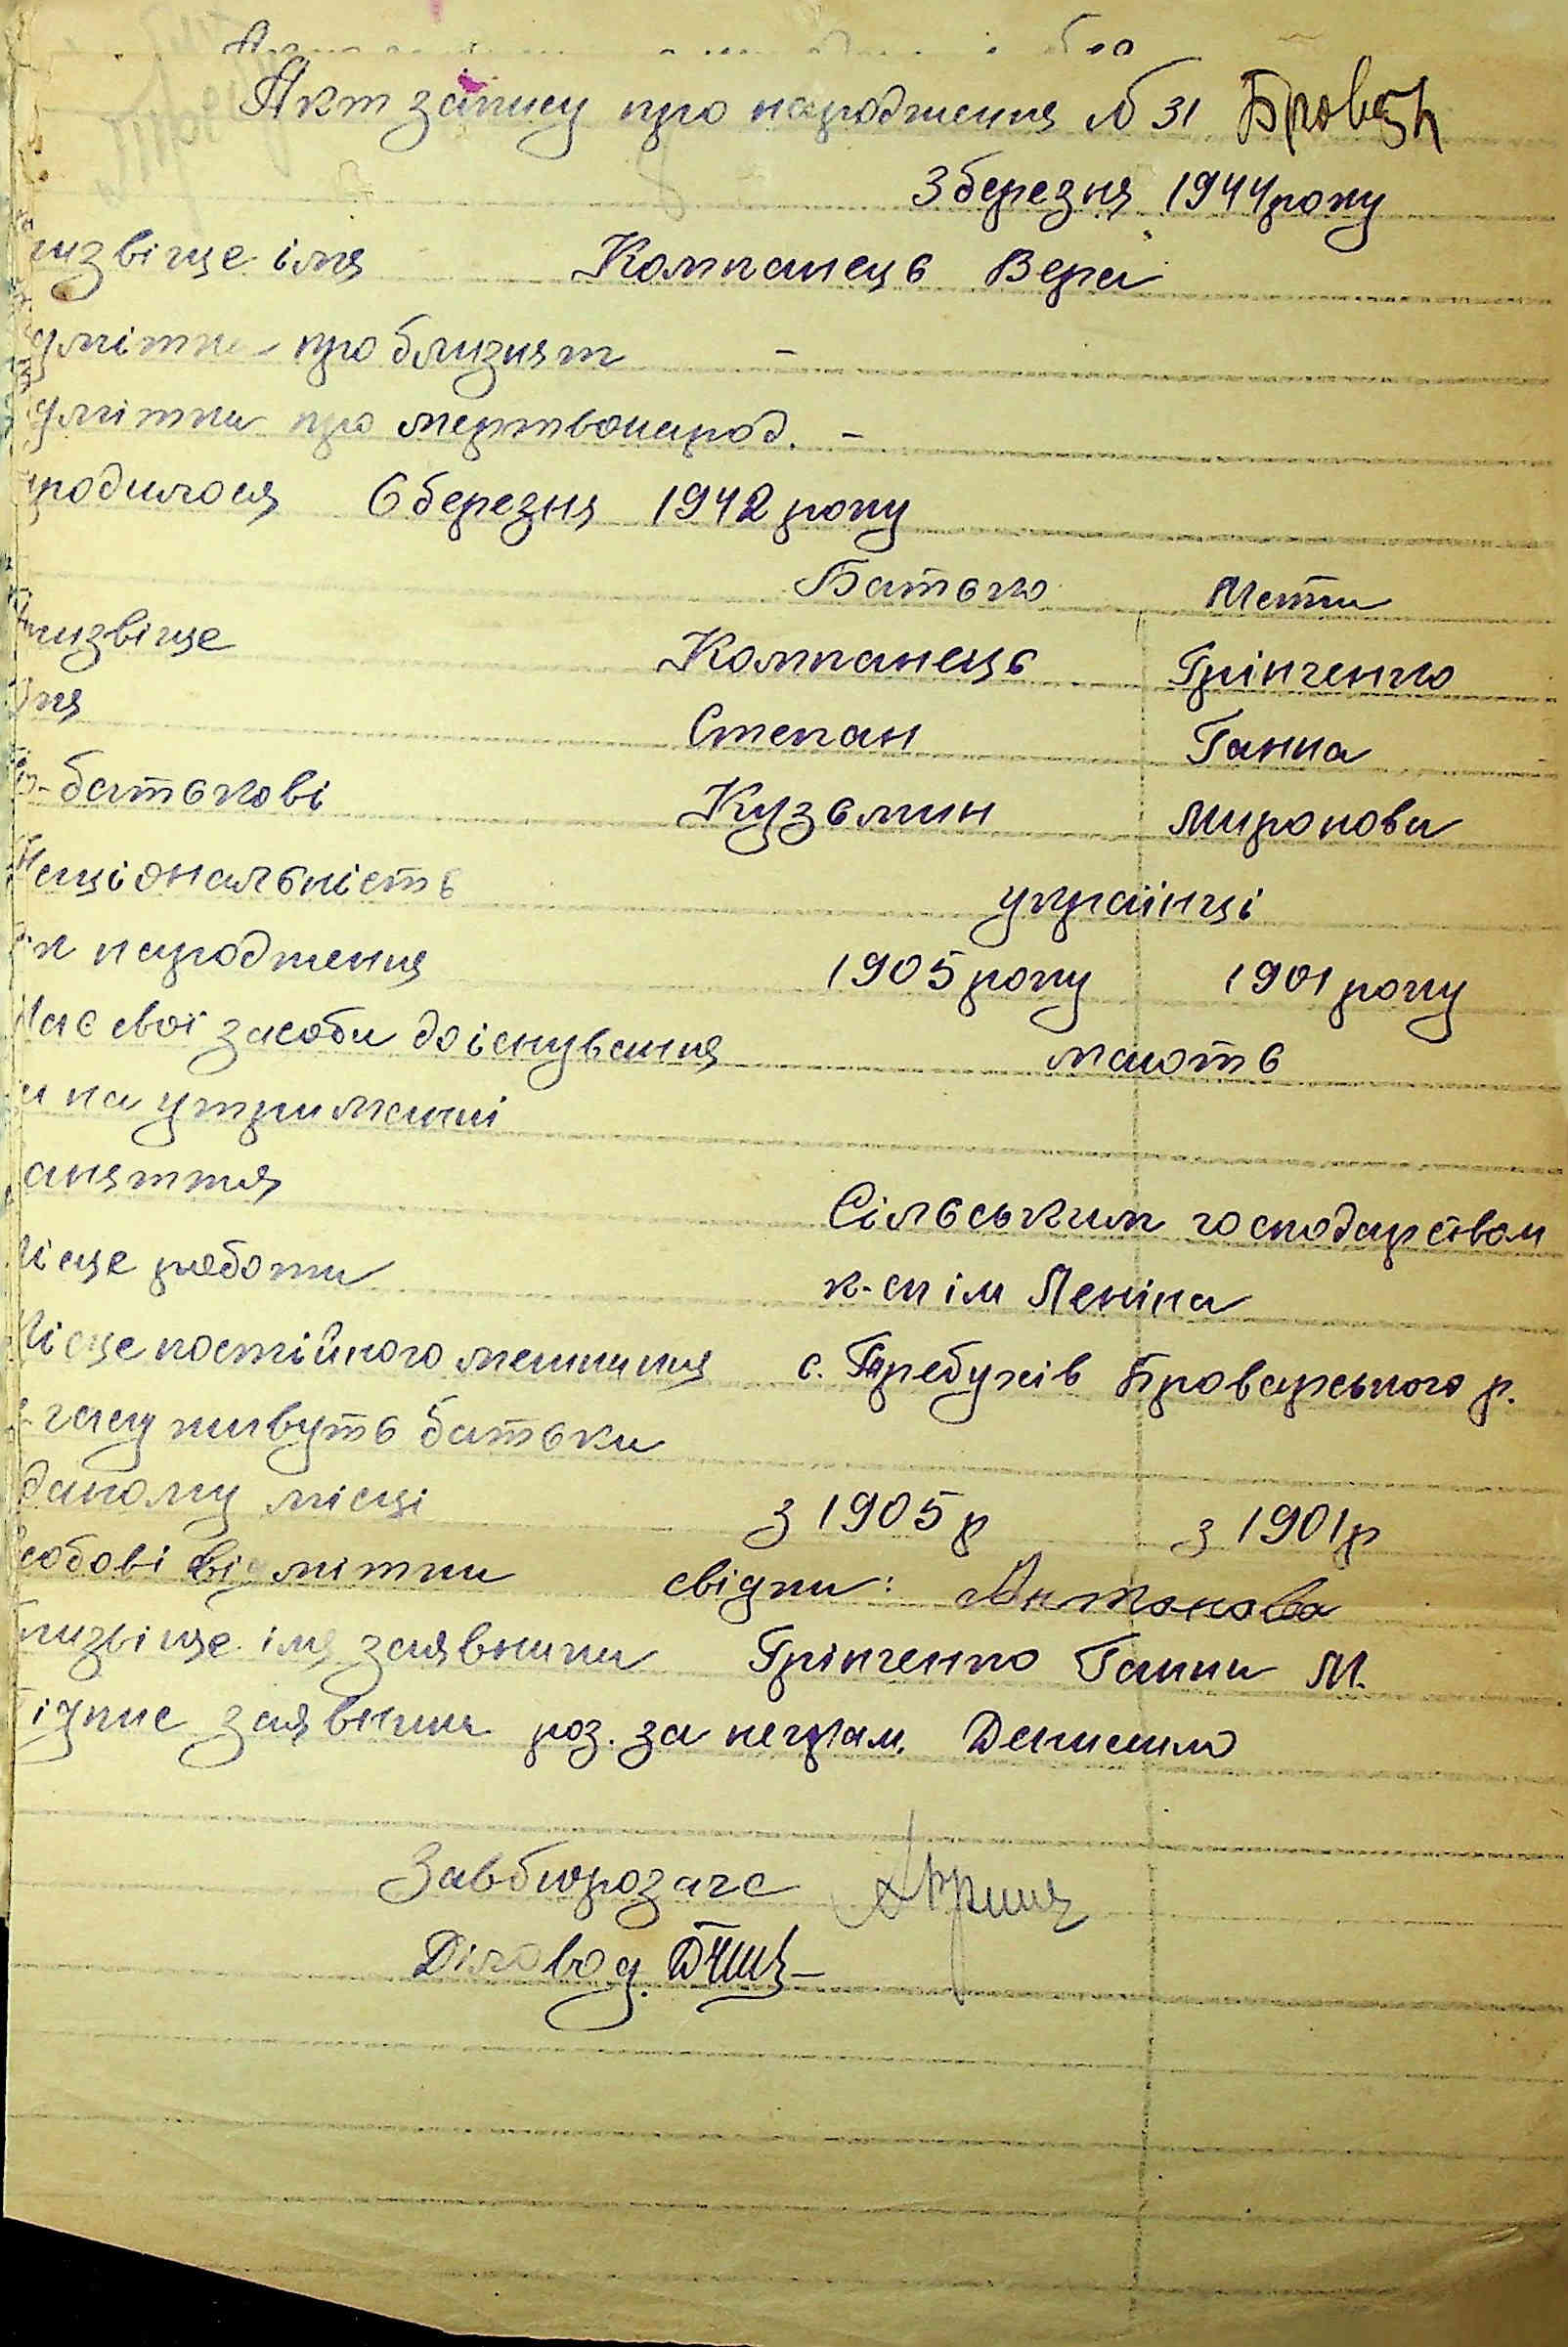 Акт запису про народження № 31
3 березня 1944 року
ризвіще імя Компанець Вера
дмітки про близнят -
дмітки про мертвонарод. -
родилося 6 березня 1942 року
Батько Мати
Призвіще Компанець Грінченко
Імя Степан Ганна
по-батькові Кузьмин Миронова
Національність українці
рік народження 1905 року 1901 року
Має свої засоби до існування мають
чи на утриманні
аняття Сільським господарством
Місце роботи к-сп ім Леніна
Місце постійного мешкання с. Требухів Броварського р.
часу живуть батьки
даному місці з 1905 р з 1901 р
собові відмітки свідки: Антонова
Призвіще імя заявника Грінченко Ганни М.
підпис заявника роз. за неграм.
Завбюрозагс
Діловод